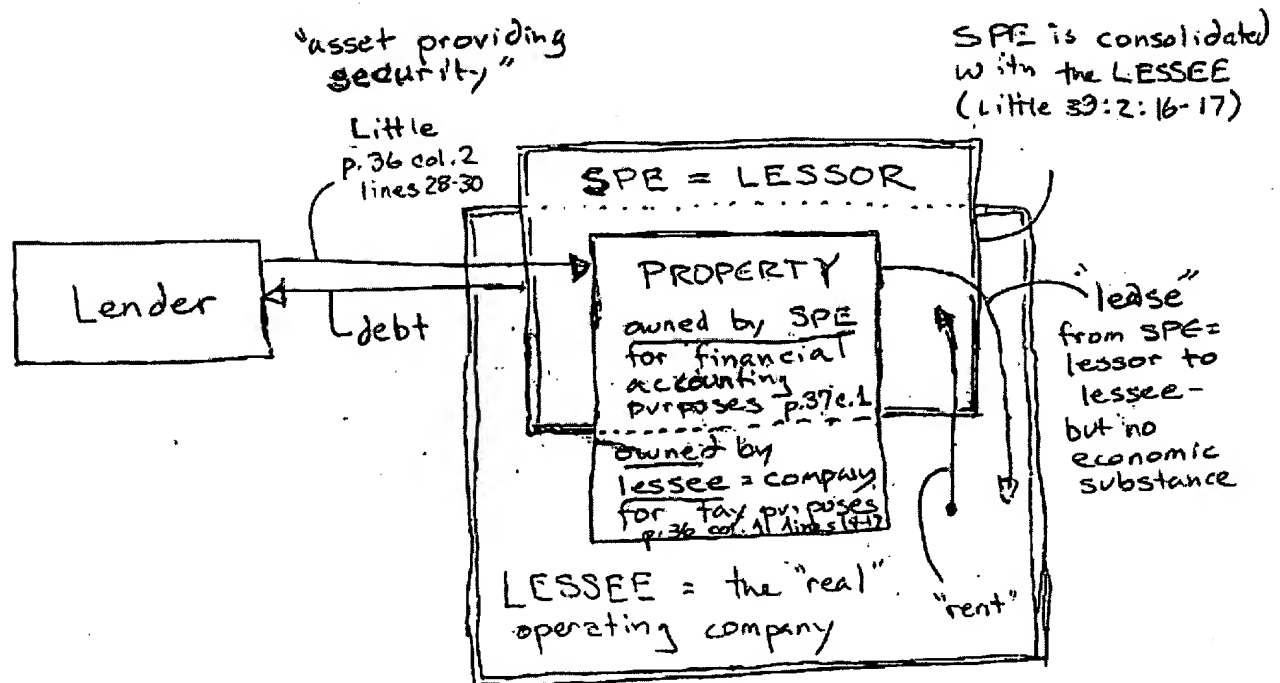 "asset providing
security"
Little
p. 36 col. 2
lines 28-30
SPE is consolidated
with the LESSEE
(Little 39:2:16-17)
SPE = LESSOR
Lender
debt
PROPERTY
owned by SPE
for financial
accounting
purposes p.37 c.1
owned by
lessee = company
for tax purposes
p.36 col. 1 lines
"lease"
from SPE=
lessor to
lessee-
but no
economic
substance
LESSEE = the "real"
operating company
"rent"